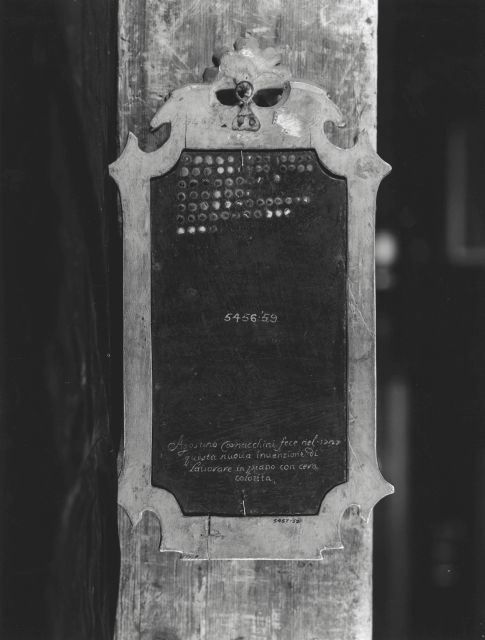 5456·59
Agostino Cornacchini fece nel
questa nuova invenzione di
lavorare in piano con cera
colorita
5457-59